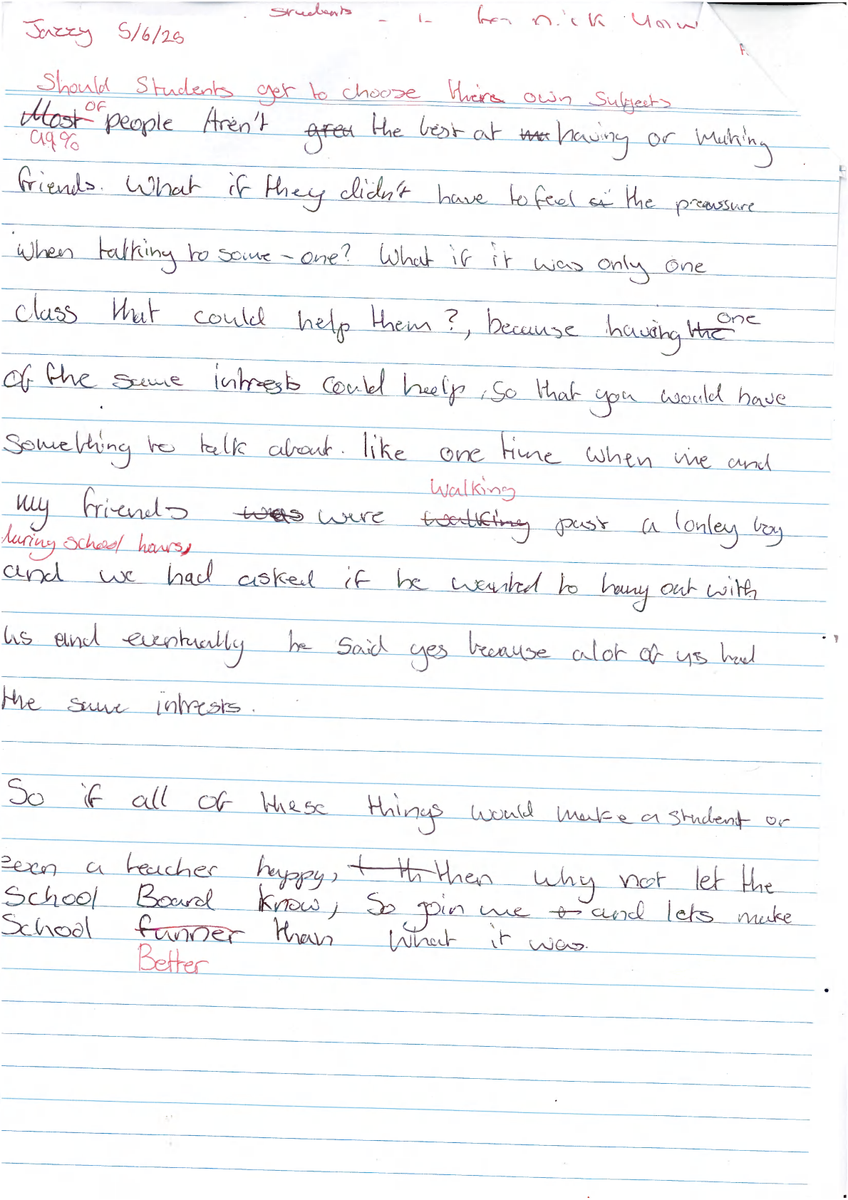 students - 1-
Jazzy 5/6/25
Should Students get to choose theire own Subjects
OF
Most people Aren't the best at having or making
99%
friends. What if they didn't have to feel the preassure
when talking to some-one? What if it was only one
class that could help them?, because having the one
of the same intrests could heelp, so that you would have
something to talk about. like one time when me and
walking
my friends was were walking past a lonley boy
during school hours,
and we had asked if he wanted to hang out with
us and eventually he said yes because alot of us had
the same intrests.
So if all of these things would make a student or
even a teacher happy, then why not let the
School Board know, So join me and lets make
School funner than what it was.
Better